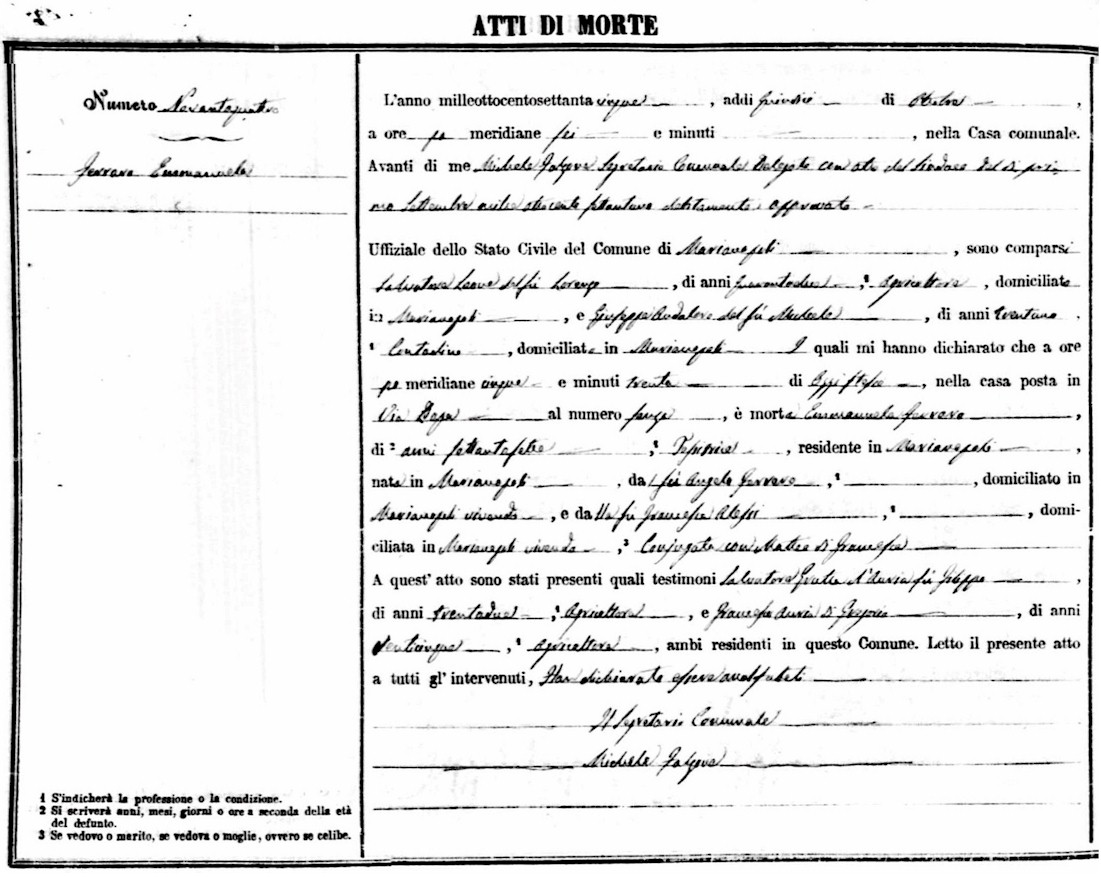 ATTI DI MORTE
Numero Novantaquattro
Ferrara Emmanuela
1 S'indicherà la professione o la condizione.
2 Si scriverà anni, mesi, giorni o ore a seconda della età
del defunto.
3 Se vedovo o marito, se vedova o moglie, ovvero se celibe.
L'anno milleottocentosettantacinque, addì quindici di Ottobre,
a ore po meridiane sei e minuti , nella Casa comunale.
Avanti di me Michele Segretario Comunale Delegato con atto del Sindaco del dì primo
Settembre mille ottocento settantuno debitamente approvato
Uffiziale dello Stato Civile del Comune di Marianopoli , sono comparsi
Salvatore Leone del fu Lorenzo , di anni , ¹ Agricoltore , domiciliato
in Marianopoli , e Giuseppe Andaloro del fu Michele , di anni trentuno .
¹ Contadino , domiciliato in Marianopoli I quali mi hanno dichiarato che a ore
po meridiane cinque e minuti trenta di oggi stesso , nella casa posta in
Via al numero , è morta Emmanuela Ferrara ,
di ² anni settantasette , ¹ , residente in Marianopoli ,
nata in Marianopoli , dal fu Angelo Ferrara , ¹ , domiciliato in
Marianopoli vivendo , e dalla fu Francesca Alessi , ¹ , domi-
ciliata in Marianopoli vivendo , ³ Conjugata con Matteo Di Francesca
A quest' atto sono stati presenti quali testimoni Salvatore D'Auria fu ,
di anni trentadue , ¹ Agricoltore , e Auria di Gregorio , di anni
Venticinque , ¹ Agricoltore , ambi residenti in questo Comune. Letto il presente atto
a tutti gl' intervenuti, Han dichiarato essere analfabeti
Il Segretario Comunale
Michele